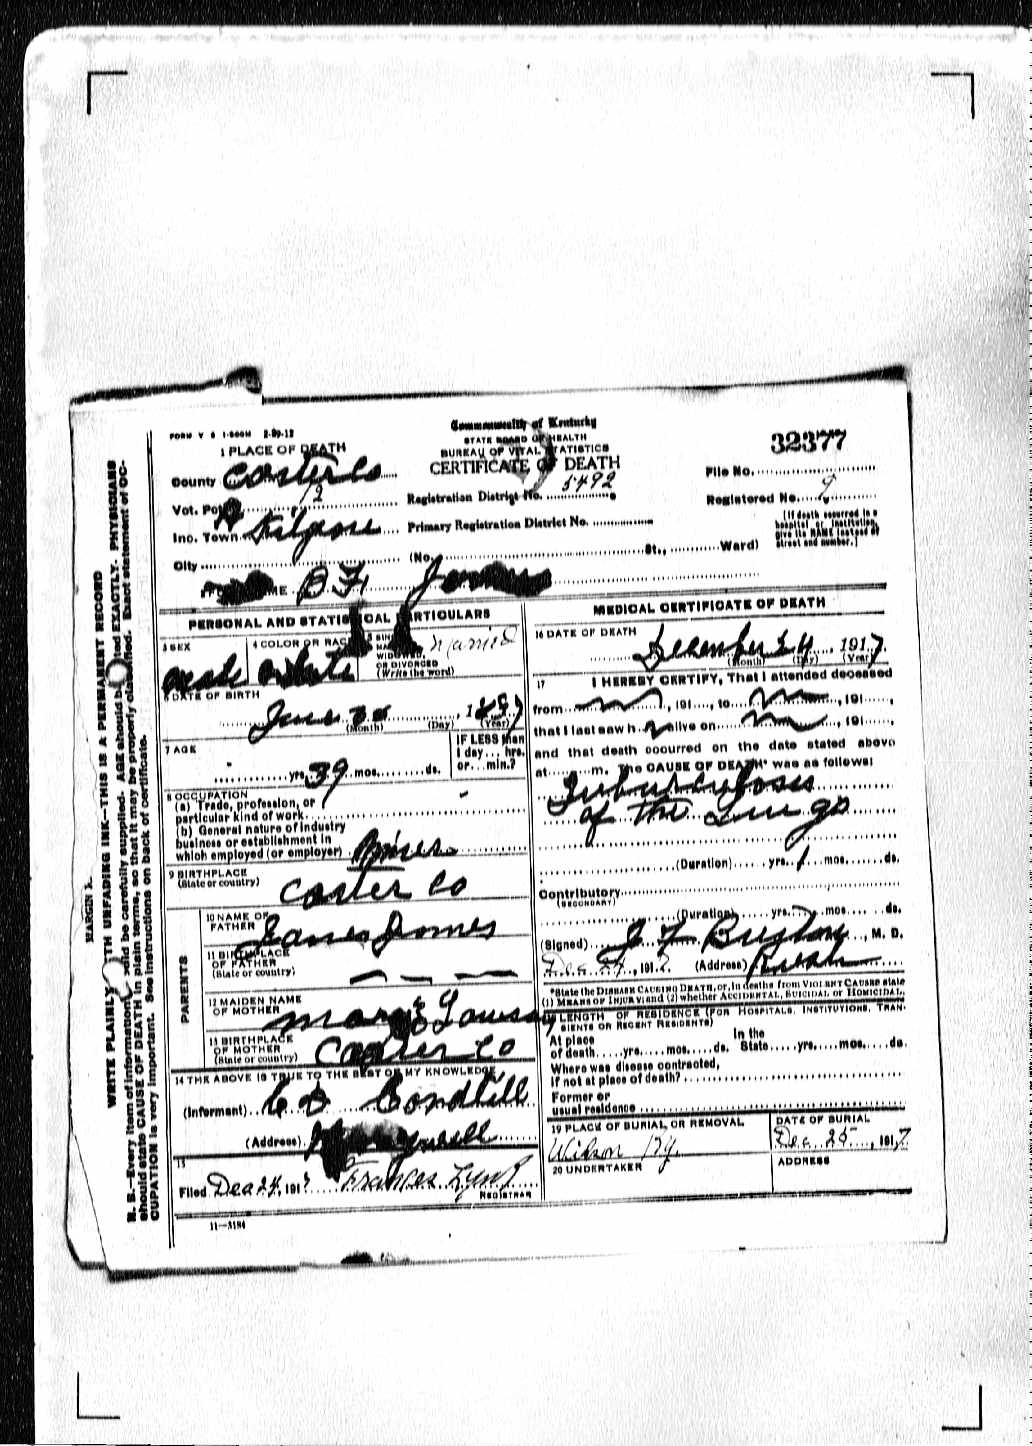 FORM V S 1-500M 2-29-12
Commonwealth of Kentucky
STATE BOARD OF HEALTH
BUREAU OF VITAL STATISTICS
CERTIFICATE OF DEATH
32377
1 PLACE OF DEATH
County Carter Co
Vot. Pct. 12
Inc. Town Kilgore
City
Registration District No. 5492
Primary Registration District No.
(No. St., Ward)
File No.
Registered No. 9
[If death occurred in a
hospital or institution,
give its NAME instead of
street and number.]
B F
PERSONAL AND STATISTICAL PARTICULARS
3 SEX
male
4 COLOR OR RACE
white
5
OR DIVORCED
(Write the word)
married
6 DATE OF BIRTH
June
(Month) (Day) (Year)
7 AGE
yrs. 39 mos. ds.
IF LESS than
1 day... hrs.
or... min.?
8 OCCUPATION
(a) Trade, profession, or
particular kind of work
(b) General nature of industry
business or establishment in
which employed (or employer)
9 BIRTHPLACE
(State or country)
Carter Co
PARENTS
10 NAME OF
FATHER
11 BIRTHPLACE
OF FATHER
(State or country)
12 MAIDEN NAME
OF MOTHER
13 BIRTHPLACE
OF MOTHER
(State or country)
Carter Co
14 THE ABOVE IS TRUE TO THE BEST OF MY KNOWLEDGE
(Informant)
(Address)
15
Filed Dec 24, 191 Frances
REGISTRAR
11—3184
MEDICAL CERTIFICATE OF DEATH
16 DATE OF DEATH
December 24, 1917
(Month) (Day) (Year)
17 I HEREBY CERTIFY, That I attended deceased
from , 191 , to , 191 ,
that I last saw h alive on , 191 ,
and that death occurred on the date stated above
at m. The CAUSE OF DEATH* was as follows:
Tuberculosis
of the Lungs
(Duration) yrs. mos. ds.
Contributory
(SECONDARY)
(Duration) yrs. mos. ds.
(Signed) , M. D.
, 191 (Address) Rush
*State the DISEASE CAUSING DEATH, or, in deaths from VIOLENT CAUSES state
(1) MEANS OF INJURY; and (2) whether ACCIDENTAL, SUICIDAL, or HOMICIDAL.
LENGTH OF RESIDENCE (FOR HOSPITALS, INSTITUTIONS, TRAN-
SIENTS OR RECENT RESIDENTS)
At place
of death yrs. mos. ds.
In the
State yrs. mos. ds.
Where was disease contracted,
if not at place of death?
Former or
usual residence
19 PLACE OF BURIAL OR REMOVAL
Wilson Ky.
DATE OF BURIAL
Dec 25, 1917
20 UNDERTAKER
ADDRESS
WRITE PLAINLY WITH UNFADING INK—THIS IS A PERMANENT RECORD
N. B.—Every item of information should be carefully supplied. AGE should be stated EXACTLY. PHYSICIANS
should state CAUSE OF DEATH in plain terms, so that it may be properly classified. Exact statement of OC-
CUPATION is very important. See instructions on back of certificate.